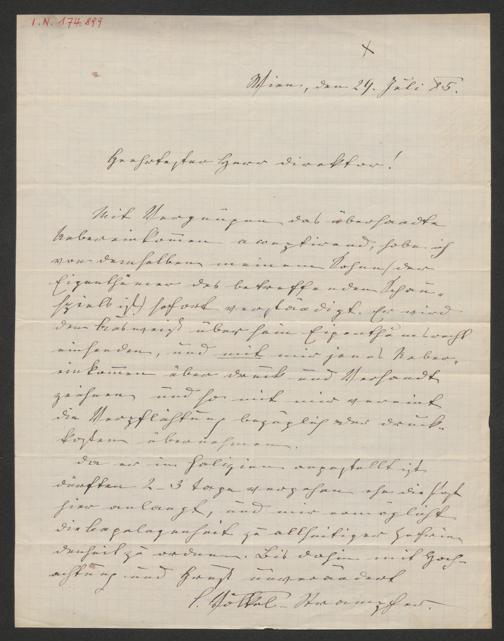 I.N. 174.899
Wien, den 24. Juli 85.
Geehrtester Herr Direktor!
Mit Vergnügen das übersandte
Uebereinkommen acceptirend, habe ich
von demselben meinem Sohne (der
Eigenthümer des betreffenden Schau-
spiels ist) sofort verständigt. Er wird
den Ausweis über sein Eigenthumsrecht
einsenden, und mit mir jenes Ueber-
einkommen über Druck und Versandt
zeichnen und so mit mir vereint
die Verpflichtung bezüglich der Druck-
kosten übernehmen.
Da er in Galizien angestellt ist
dürften 2-3 Tage vergehen ehe die
hier anlangt, und mir ermöglicht
die Angelegenheit zu allseitiger Zufrie-
denheit zu ordnen. Bis dahin mit Hoch-
achtung und Gruß unverändert